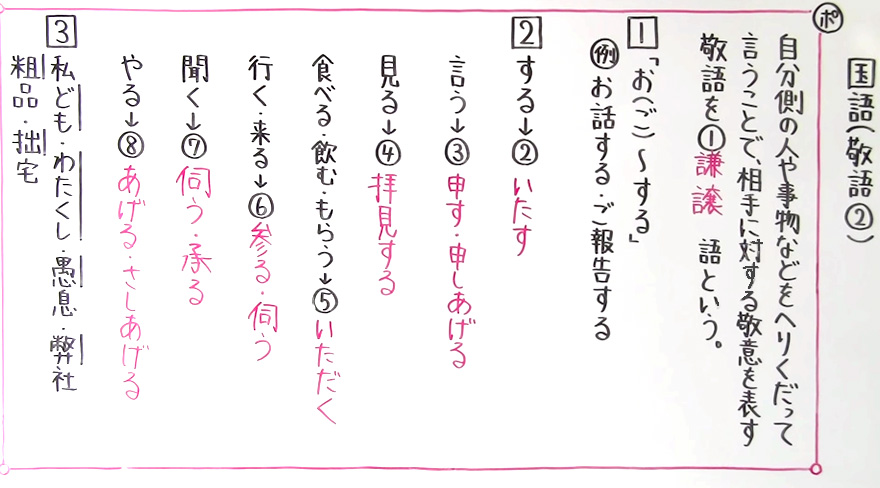 国語(敬語②)
ポ
自分側の人や事物などをへりくだって
言うことで、相手に対する敬意を表す
敬語を①謙譲 語という。
1 「お(ご)〜する」
例 お話する・ご報告する
2 する→②いたす
言う→③申す・申しあげる
見る→④拝見する
食べる・飲む・もらう→⑤いただく
行く・来る→⑥参る・伺う
聞く→⑦伺う・承る
やる→⑧あげる・さしあげる
3 私ども・わたくし・愚息・弊社
粗品・拙宅